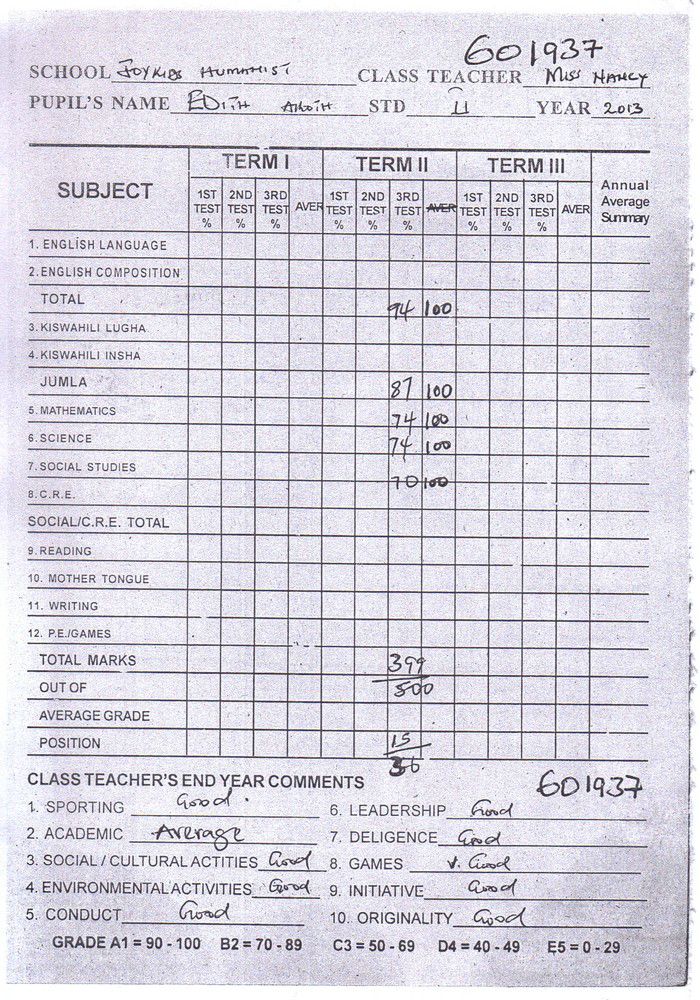 601937
SCHOOL JOYKIDS HUMANIST CLASS TEACHER MISS NANCY
PUPIL'S NAME EDITH STD 11 YEAR 2013
SUBJECT TERM I TERM II TERM III Annual Average Summary
1ST TEST % 2ND TEST % 3RD TEST % AVER 1ST TEST % 2ND TEST % 3RD TEST % AVER 1ST TEST % 2ND TEST % 3RD TEST % AVER
1. ENGLISH LANGUAGE
2. ENGLISH COMPOSITION
TOTAL 94 100
3. KISWAHILI LUGHA
4. KISWAHILI INSHA
JUMLA 87 100
5. MATHEMATICS 74 100
6. SCIENCE 74 100
7. SOCIAL STUDIES 70 100
8. C.R.E.
SOCIAL/C.R.E. TOTAL
9. READING
10. MOTHER TONGUE
11. WRITING
12. P.E./GAMES
TOTAL MARKS 399
OUT OF 500
AVERAGE GRADE
POSITION 15
36
CLASS TEACHER'S END YEAR COMMENTS 601937
1. SPORTING Good. 6. LEADERSHIP Good
2. ACADEMIC Average 7. DELIGENCE Good
3. SOCIAL / CULTURAL ACTITIES Good 8. GAMES V. Good
4. ENVIRONMENTAL ACTIVITIES Good 9. INITIATIVE Good
5. CONDUCT Good 10. ORIGINALITY Good
GRADE A1 = 90 - 100 B2 = 70 - 89 C3 = 50 - 69 D4 = 40 - 49 E5 = 0 - 29